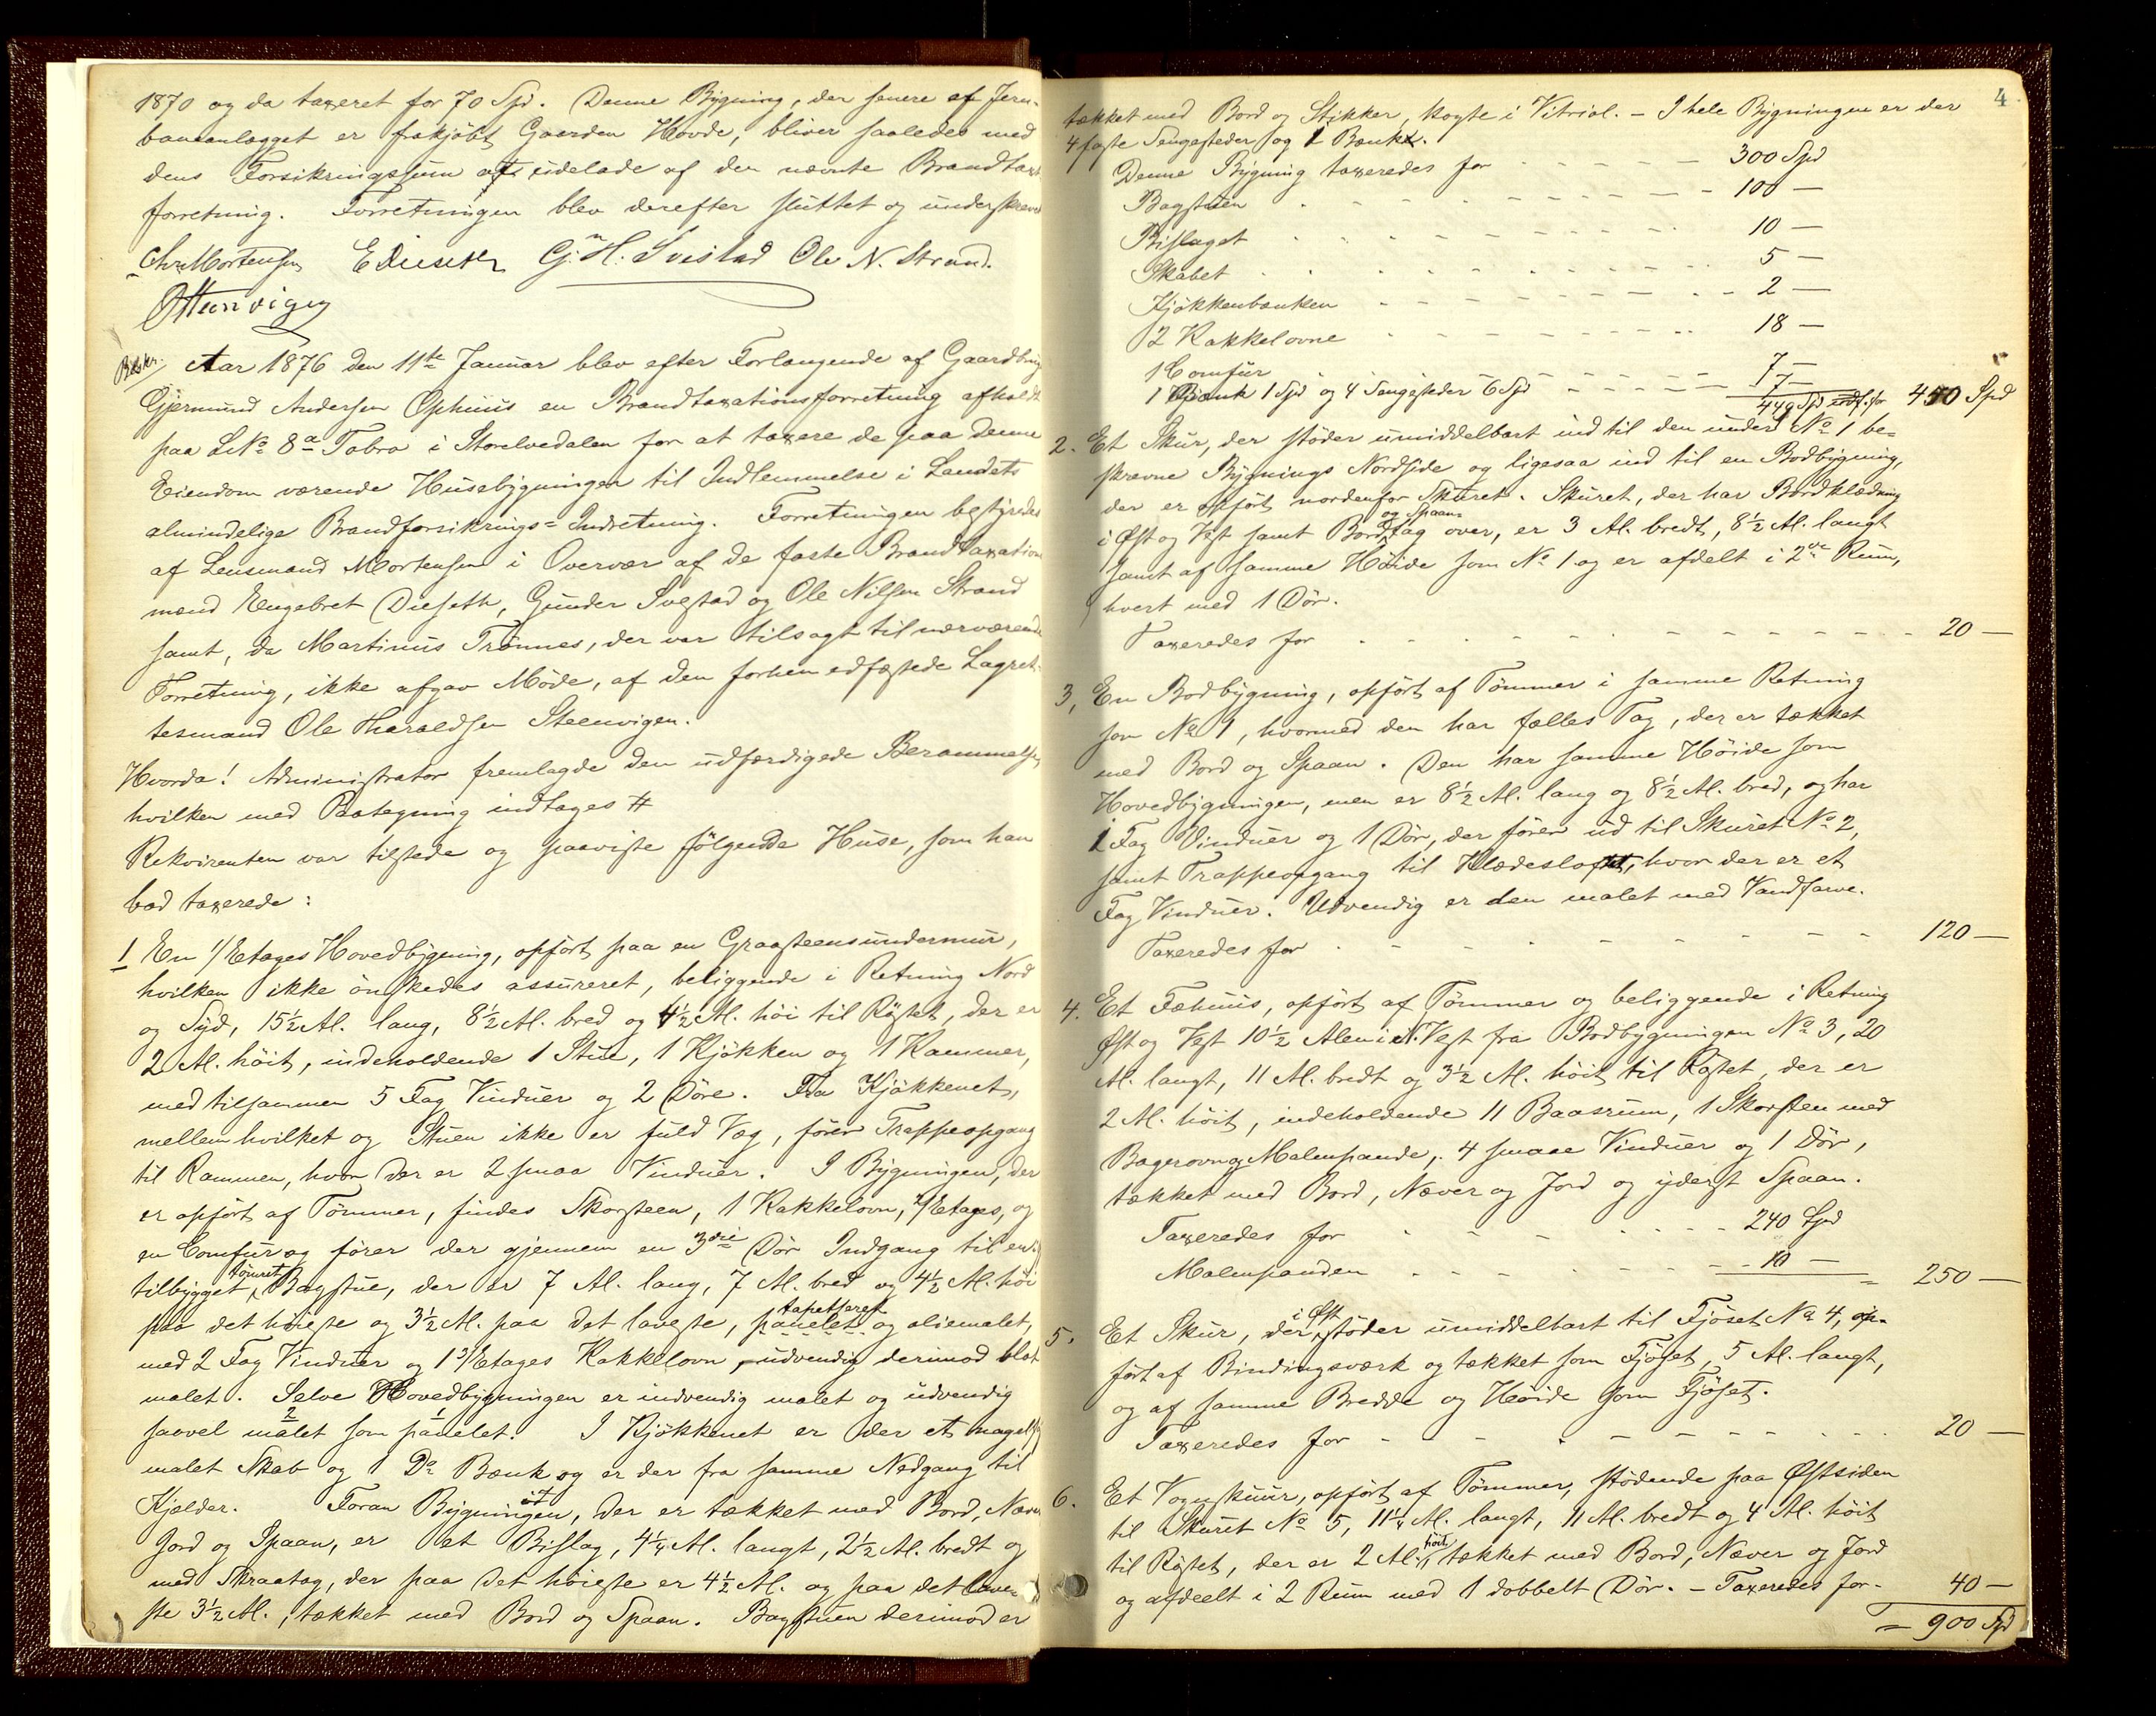 1870 og da taxeret for 70 Spd. Denne Bygning, der senere af Jern-
baneanlægget er frakjöbt Gaarden Hovde, bliver saaledes med
dens Forsikringssum at udelade af den nævnte Brandtaxt
forretning. Forretningen blev derefter sluttet og underskrevet
Chr Mortensen EDieseth G. H. Svestad Ole N. Strand.
OSteenvigen
Beskr. Aar 1876 den 11te Januar blev efter Forlangende af Gaardbrug
Gjermund Andersen Ophuus en Brandtaxationsforretning afholdt
paa LNo 8a Tobro i Storelvedalen for at taxere de paa denne
Eiendom værende Husebygninger til Indlemmelse i Landets
almindelige Brandforsikrings-Indretning. Forretningen bestyredes
af Lensmand Mortensen i Overvær af de faste Brandtaxations
mænd Engebret Dieseth, Gunder Svestad og Ole Nilsen Strand
samt, da Martinus Trönnes, der var tilsagt til nærværende
Forretning, ikke afgav Möde, af den forhen edfæstede Lagret-
tesmand Ole Haraldsen Steenvigen.
Hvorda! Administrator fremlagde den udfærdigede Berammelse,
hvilken med Paategning indtages #
Rekvirenten var tilstede og paaviste fölgende Huse, som han
bad taxerede:
1 En 1/Etages Hovedbygning, opfört paa en Graasteensundermur,
hvilken ikke önskedes assureret, beliggende i Retning Nord
og Syd, 15½ Al. lang, 8½ Al. bred og 4½ Al. höi til Röstet, der er
2 Al. höit, indeholdende 1 Stue, 1 Kjökken og 1 Kammer,
med tilsammen 5 Fag Vinduer og 2 Döre. Fra Kjökkenet,
mellem hvilket og Stuen ikke er fuld Væg, förer Trappeopgang
til Rammen, hvor der er 2 smaa Vinduer. I Bygningen, der
er opfört af Tömmer, findes Skorsteen, 1 Kakkelovn, /Etages, og
en Comfur og förer der gjennem en 3die Dör Indgang til en
tilbygget tömret Bagstue, der er 7 Al. lang, 7 Al. bred og 4½ Al. höi
paa det höieste og 3½ Al. paa det laveste, panelet tapetseret og oliemalet,
med 2 Fag Vinduer og 1 3/Etages Kakkelovn, udvendig derimod blot
malet. Selve Hovedbygningen er indvendig malet og udvendig
saavel 2 malet som 1 panelet. I Kjökkenet er der et nagelf.
malet Skab og 1 Do Bænk og er der fra samme Nedgang til
Kjelder. Foran Bygningen, der er tækket med Bord, Næver
Jord og Spaan, er et Bislag, 4¼ Al. langt, 2½ Al. bredt og
med Skraatag, der paa det höieste er 4½ Al. og paa det lave-
ste 3½ Al., tækket med Bord og Spaan. Bagstuen derimod er
4
tækket med Bord og Stikker, kogte i Vitriol. - I hele Bygningen er der
4 faste Sengesteder og 1 Bænk.
Denne Bygning taxeredes for - - - - 300 Spd
Bagstuen - - - - 100 —
Bislaget - - - - 10 —
Skabet - - - - 5 —
Kjökkenbænken - - - - 2 —
2 Kakkelovne - - - - 18 —
1 Comfur - - - - 7 —
1 Bænk 1 Spd og 4 Sengesteder 6 Spd - - - - 7 —
449 Spd for 450 Spd
2. Et Skur, der stöder umiddelbart ind til den under No 1 be-
skrevne Bygnings Nordside og ligesaa ind til en Bodbygning,
der er opfört nordenfor Skuret. Skuret, der har Bordklædning
i Øst og Vest samt Bord og Spaan- tag over, er 3 Al. bredt, 8½ Al. langt
samt af samme Höide som No 1 og er afdelt i 2de Rum,
hvert med 1 Dör.
Taxeredes for - - - - 20 —
3, En Bodbygning, opfört af Tömmer i samme Retning
som No 1, hvormed den har fælles Tag, der er tækket
med Bord og Spaan. Den har samme Höide som
Hovedbygningen, men er 8½ Al. lang og 8½ Al. bred, og har
1 Fag Vinduer og 1 Dör, der förer ud til Skuret No 2,
samt Trappeopgang til Klædesloftet, hvor der er et
Fag Vinduer. Udvendig er den malet med Vandfarve.
Taxeredes for - - - - 120 —
4. Et Fæhuus, opfört af Tömmer og beliggende i Retning
Øst og Vest 10½ Alen i N. Vest fra Bodbygningen No 3, 20
Al. langt, 11 Al. bredt og 3½ Al. höit til Röstet, der er
2 Al. höit, indeholdende 11 Baasrum, 1 Skorsten med
Bagerovn og Malmpande, 4 smaae Vinduer og 1 Dör,
tækket med Bord, Næver og Jord og yderst Spaan.
Taxeredes for - - - - 240 Spd
Malmpanden - - - - 10 — = 250 —
5. Et Skur, der i Øst stöder umiddelbart til Fjöset No 4, op-
fört af Bindingsværk og tækket som Fjöset, 5 Al. langt,
og af samme Bredde og Höide som Fjöset.
Taxeredes for - - - - 20 —
6. Et Vognskuur, opfört af Tömmer, stödende paa Østsiden
til Skuret No 5, 11¼ Al. langt, 11 Al. bredt og 4 Al. höit
til Röstet, der er 2 Al. höit, tækket med Bord, Næver og Jord
og afdeelt i 2 Rum med 1 dobbelt Dör. - Taxeredes for - 40 —
= 900 Spd